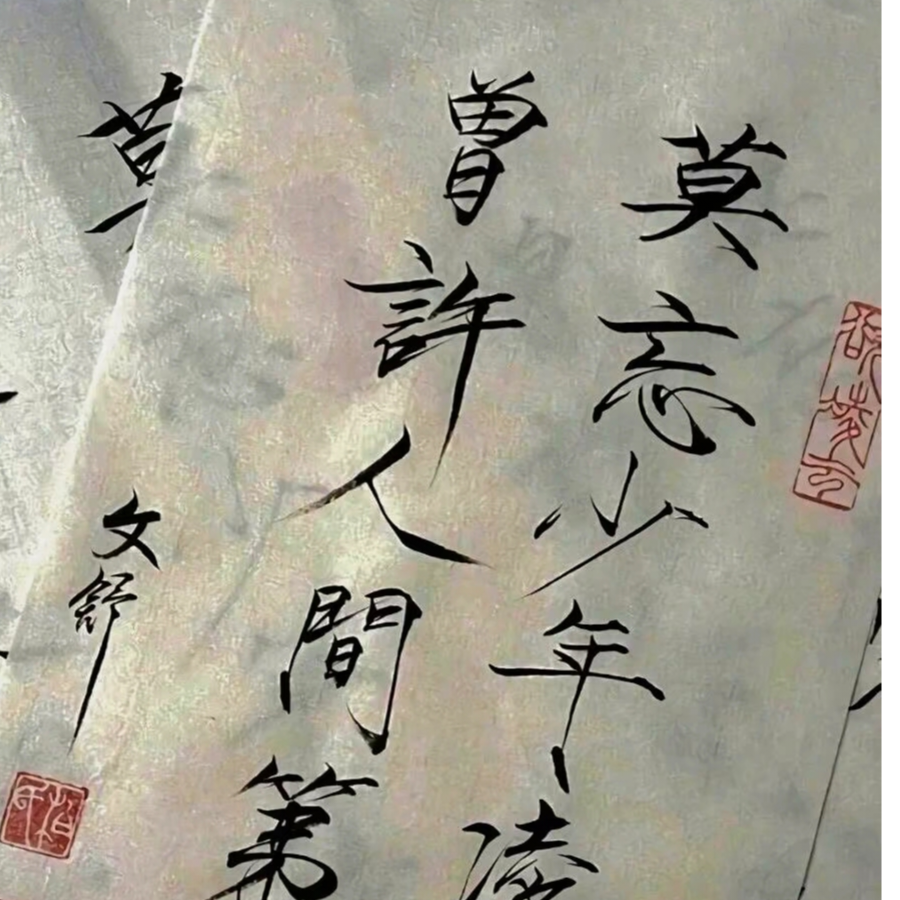 莫忘少年凌
曾許人間第
文舒